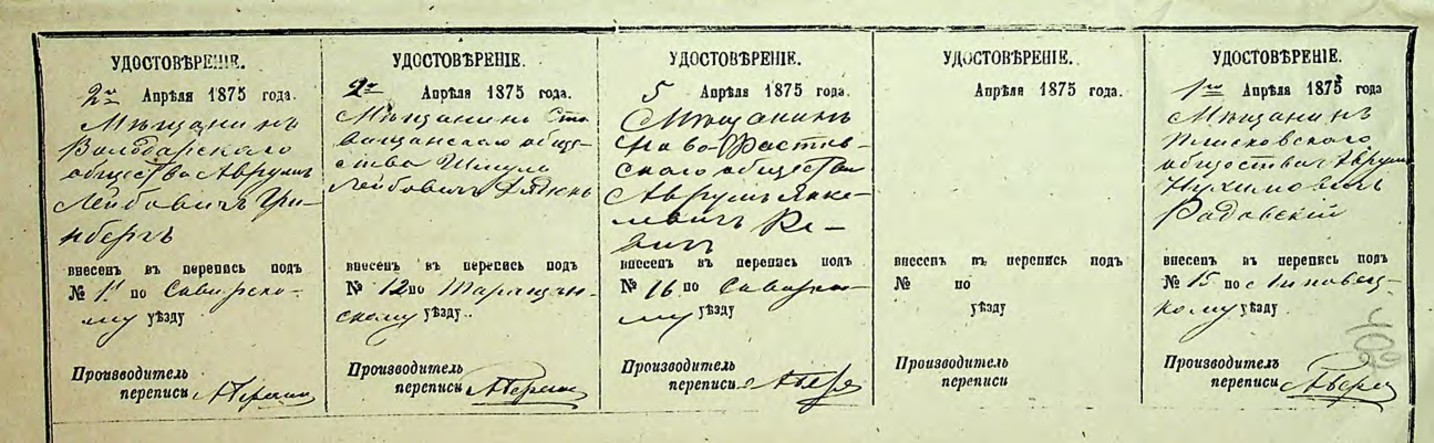 УДОСТОВѢРЕНІЕ.
2го Апрѣля 1875 года.
Мѣщанинъ
Володарскаго
общества Аврумъ
Лейбовичъ Грин-
нбергъ
внесенъ въ перепись подъ
№ 11 по Сквирско-
му уѣзду
Производитель
переписи
УДОСТОВѢРЕНІЕ.
2го Апрѣля 1875 года.
Мѣщанинъ Ста
вищанскаго обще-
ства Шмуль
Лейбовичъ
внесенъ въ перепись подъ
№ 12 по Таращан-
скому уѣзду.
Производитель
переписи
УДОСТОВѢРЕНІЕ.
5 Апрѣля 1875 года.
Мѣщанинъ
Ново-Фастов-
скаго общества
Аврумъ Янке-
левичъ Ре-
зинъ
внесенъ въ перепись подъ
№ 16 по Сквирско-
му уѣзду
Производитель
переписи
УДОСТОВѢРЕНІЕ.
Апрѣля 1875 года.
внесенъ въ перепись подъ
№ по
уѣзду
Производитель
переписи
УДОСТОВѢРЕНІЕ.
1го Апрѣля 1875 года
Мѣщанинъ
Плисковскаго
общества Аврумъ
Нухимовичъ
Радовскій
внесенъ въ перепись подъ
№ 15 по Липовец-
кому уѣзду.
Производитель
переписи